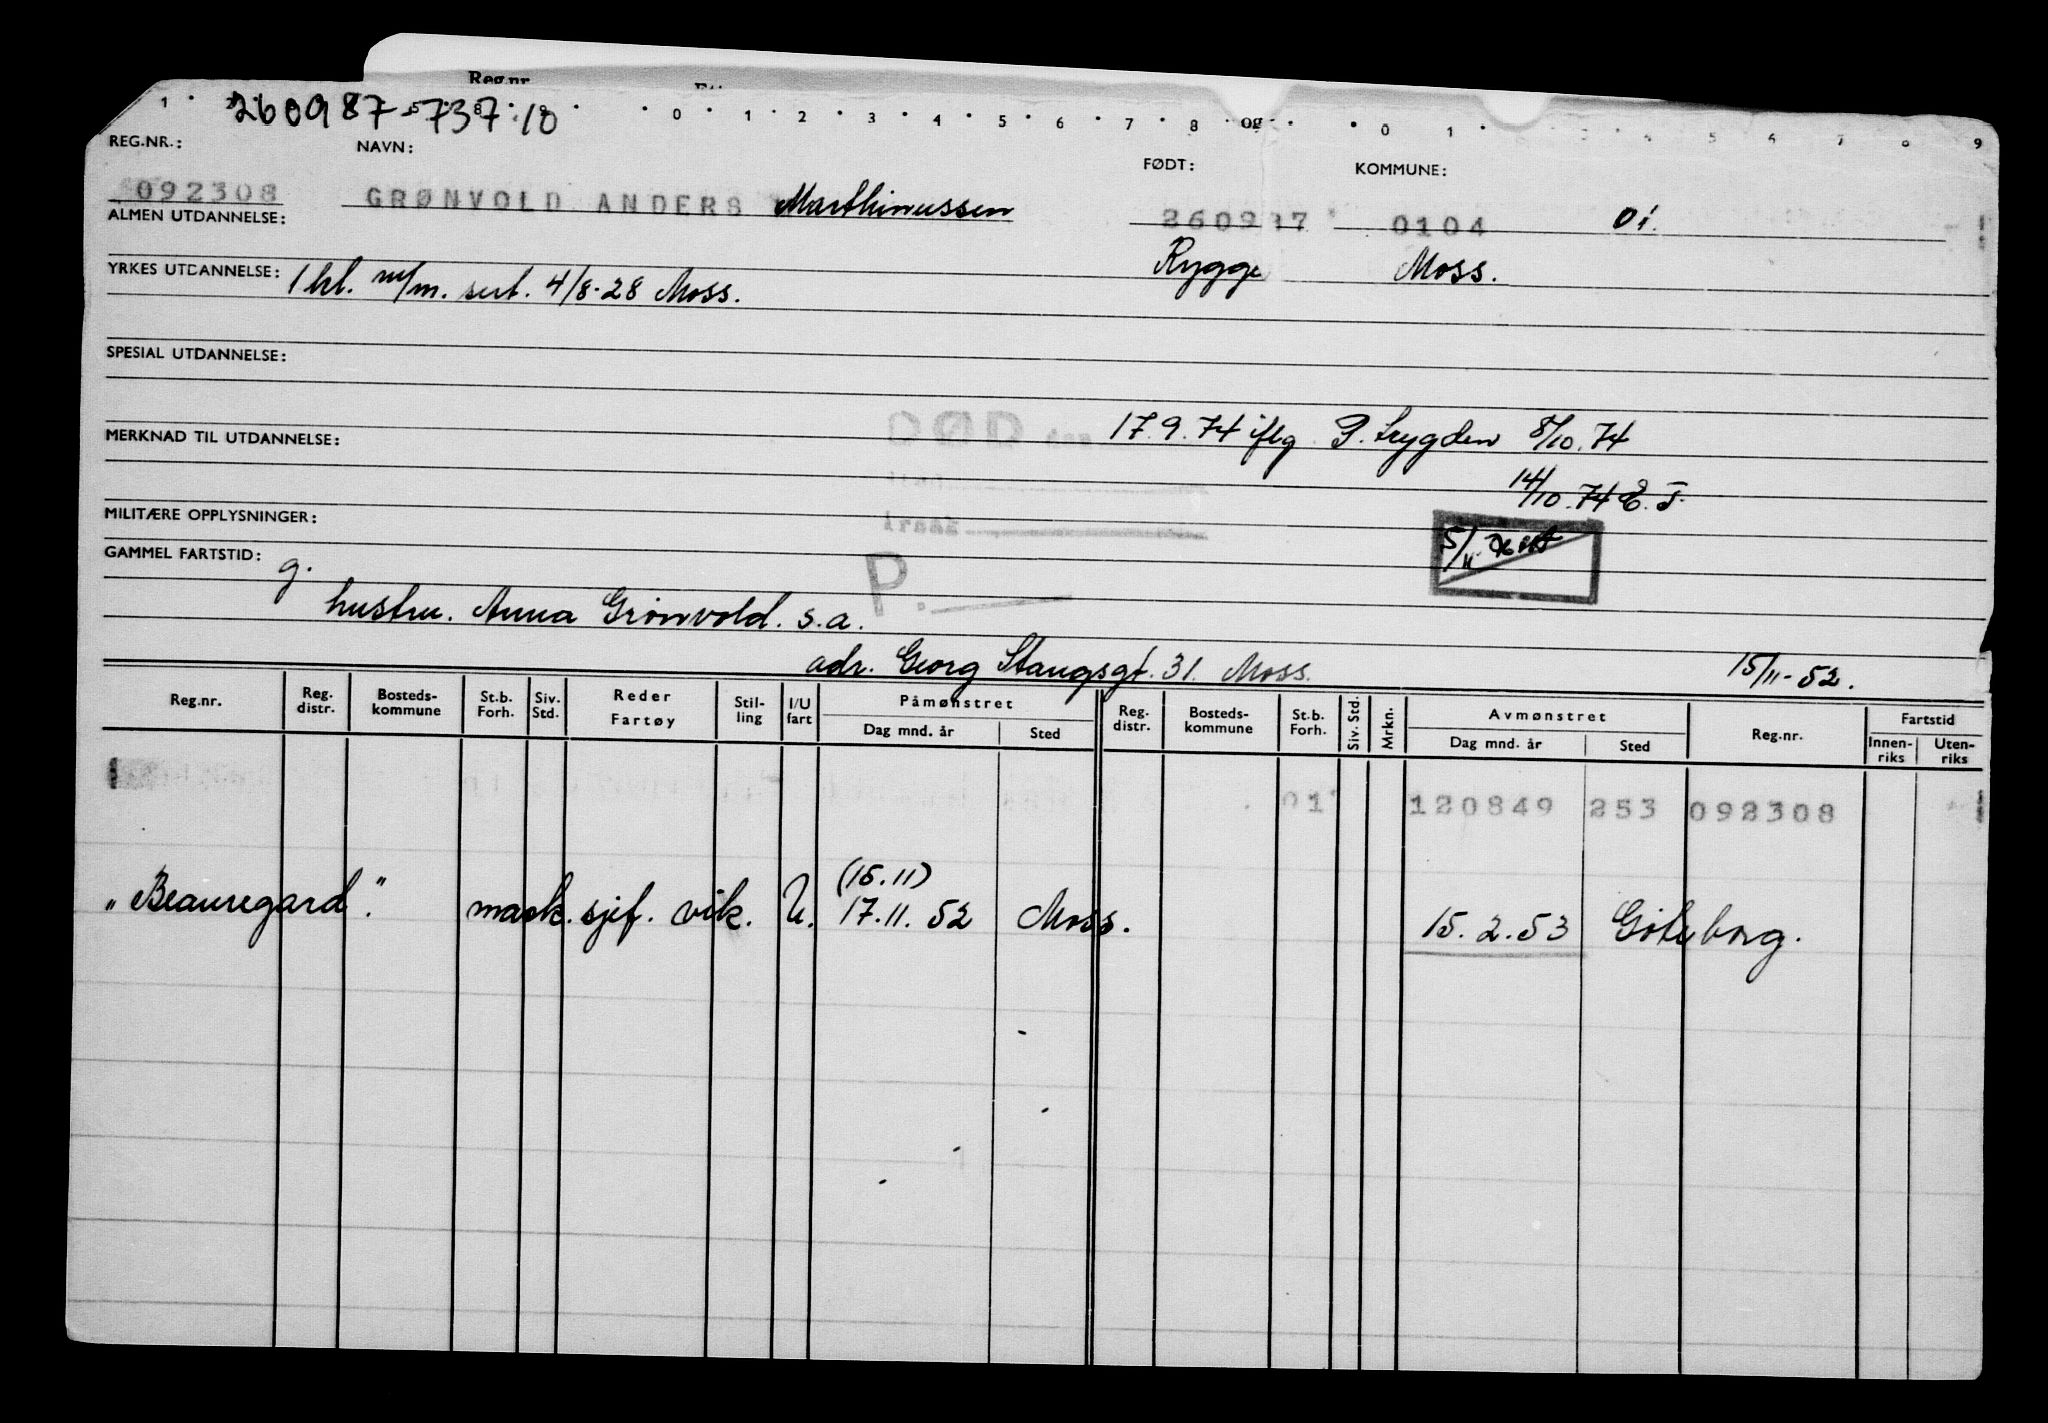 Reg.nr.
260987-737:10
1 0 1 2 3 4 5 6 7 8 og 0 1 3 4 5 6 7 8 9
REG.NR.: NAVN: FØDT: KOMMUNE:
092308 GRØNVOLD ANDERS Marthinussen 260987 0104 01.
ALMEN UTDANNELSE:
Rygge Moss.
YRKES UTDANNELSE: 1 kl. m/m. sert. 4/8-28 Moss.
SPESIAL UTDANNELSE:
DØD den 17.9.74 iflg P. trygden 8/10.74
MERKNAD TIL UTDANNELSE:
14/10.74 E.T.
MILITÆRE OPPLYSNINGER: årsak
5/11
GAMMEL FARTSTID: g. P.
hustru. Anna Grønvold. s.a.
adr. Georg Stangsgt. 31. Moss. 15/11-52.
Reg.nr. Reg. distr. Bosteds-kommune St.b. Forh. Siv. Std. Reder Fartøy Stil-ling I/U fart Påmønstret Dag mnd. år Sted Reg. distr. Bosteds-kommune St.b. Forh. Siv. Std. Mrkn. Avmønstret Dag mnd. år Sted Reg.nr. Fartstid Innen-riks Uten-riks
01 120849 253 092308
(15.11)
"Beauregard". mask. sjef. vik. U. 17.11.52 Moss. 15.2.53 Göteborg.